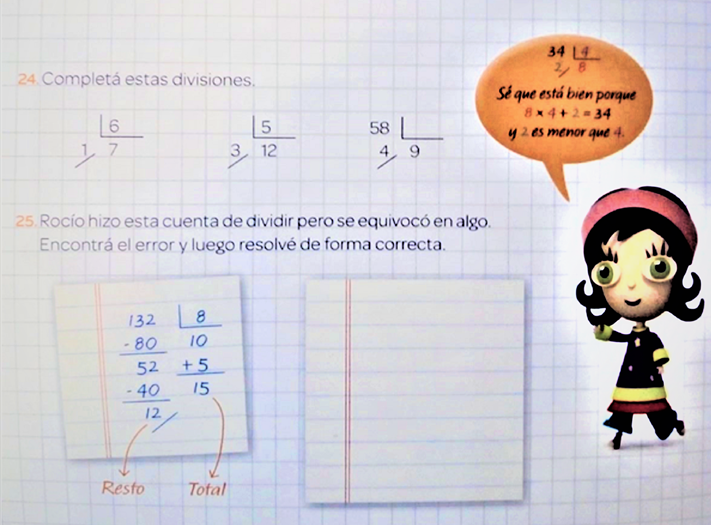 34 4
2 8
Sé que está bien porque
8 x 4 + 2 = 34
y 2 es menor que 4.
24. Completá estas divisiones.
6
1 7
5
3 12
58
4 9
25. Rocío hizo esta cuenta de dividir pero se equivocó en algo.
Encontrá el error y luego resolvé de forma correcta.
132 8
- 80 10
52 + 5
- 40 15
12
Resto Total